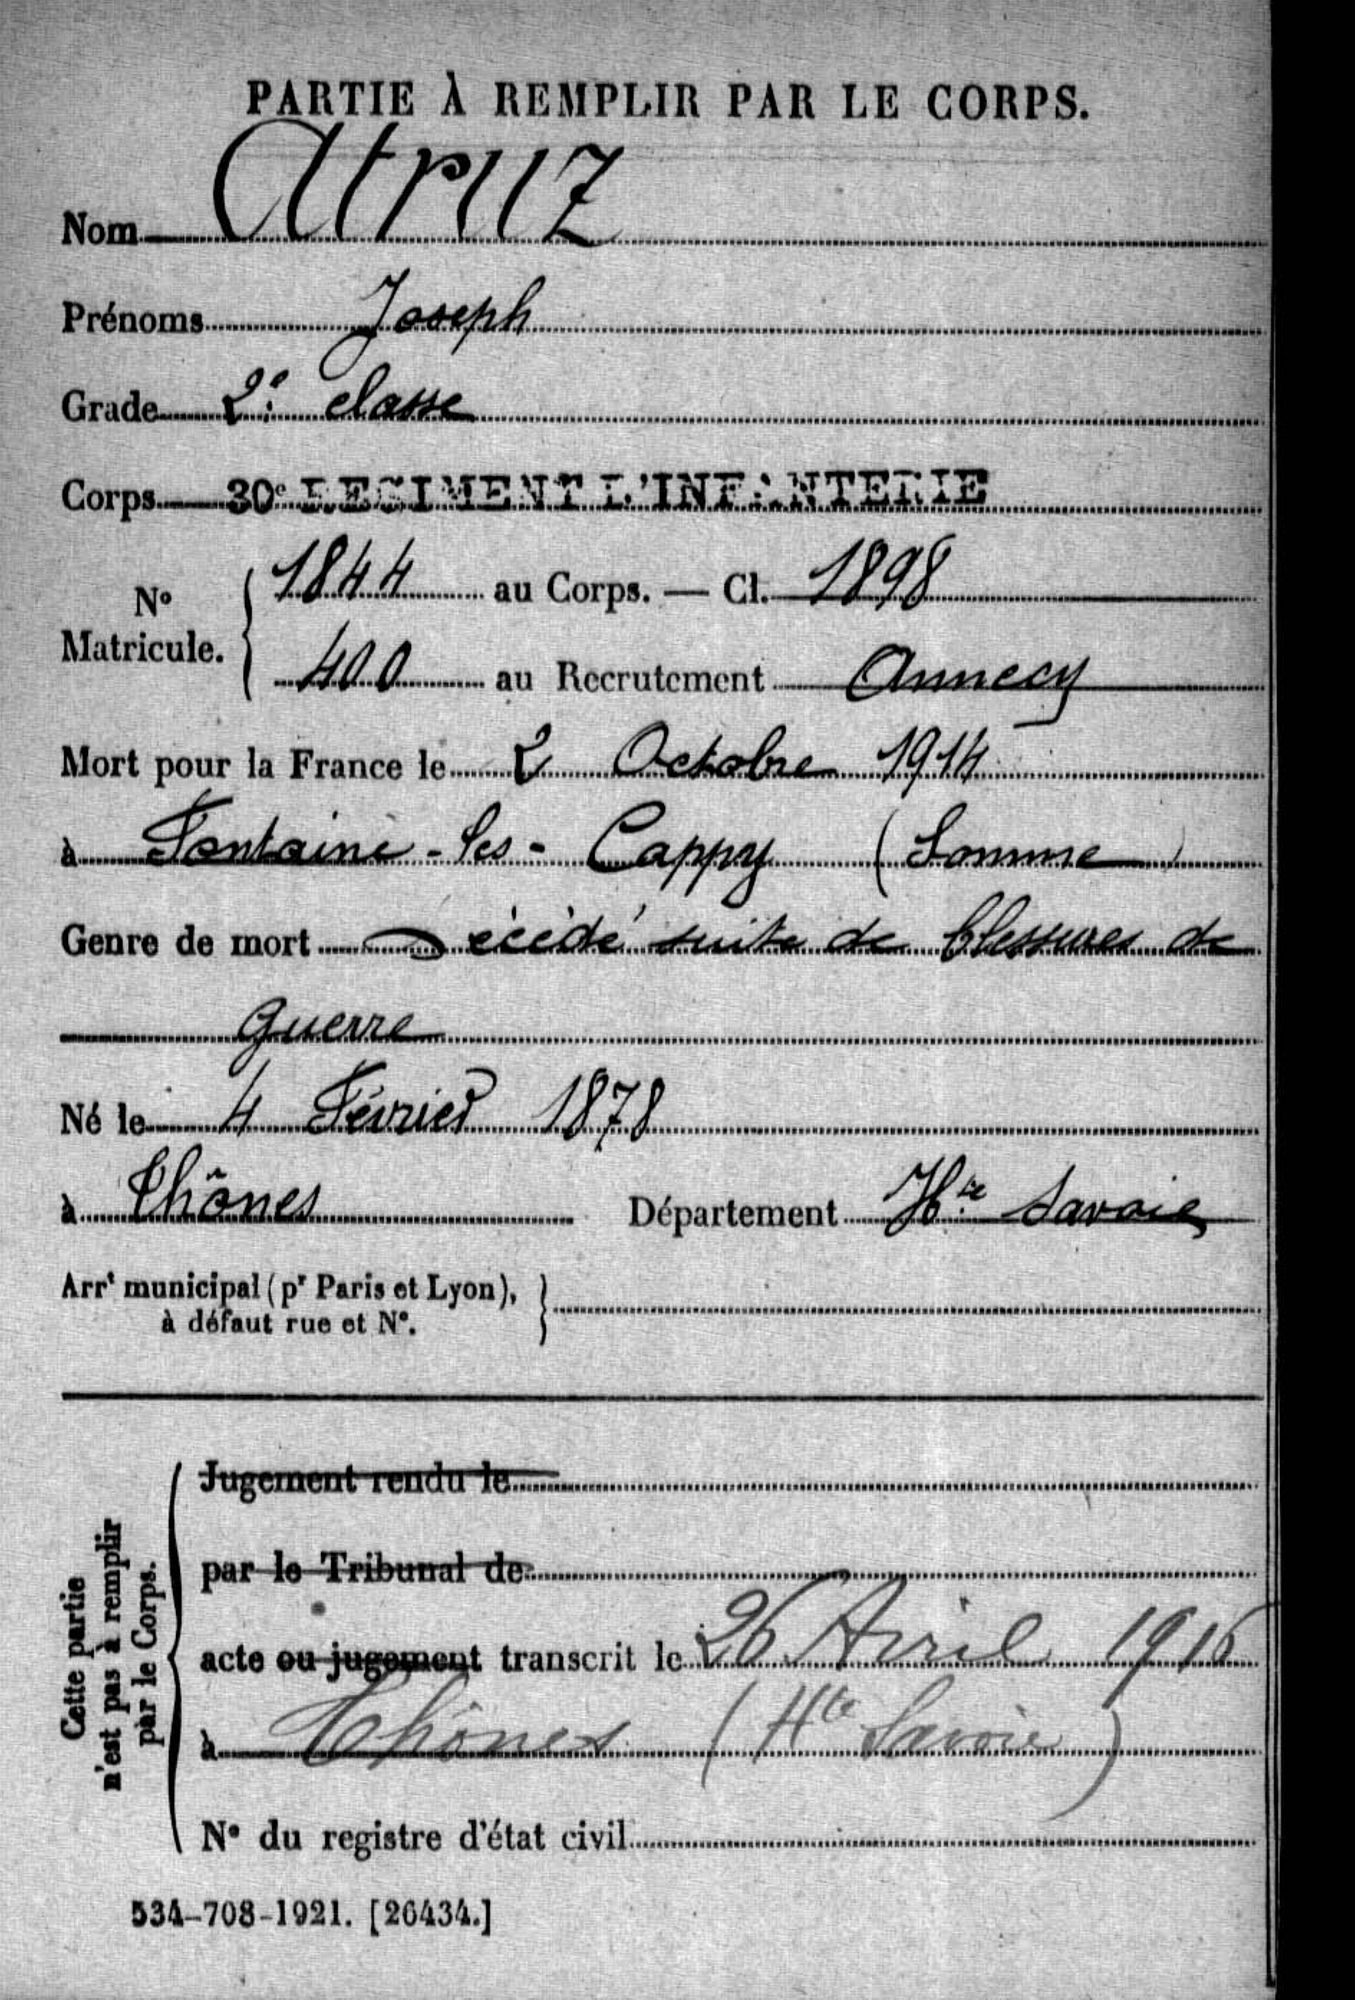 PARTIE À REMPLIR PAR LE CORPS.
Nom Atruz
Prénoms Joseph
Grade 2e classe
Corps 30e REGIMENT D'INFANTERIE
N° Matricule. 1844 au Corps. — Cl. 1898
400 au Recrutement Annecy
Mort pour la France le 2 Octobre 1914
à Fontaine-les-Cappy (Somme)
Genre de mort Décédé suite de blessures de
guerre
Né le 4 Février 1878
à Thônes Département Hte Savoie
Arrt municipal (pr Paris et Lyon),
à défaut rue et N°.
Cette partie
n'est pas à remplir
par le Corps.
Jugement rendu le
par le Tribunal de
acte ou jugement transcrit le 26 Avril 1916
à Thônes (Hte Savoie)
N° du registre d'état civil
534-708-1921. [26434.]